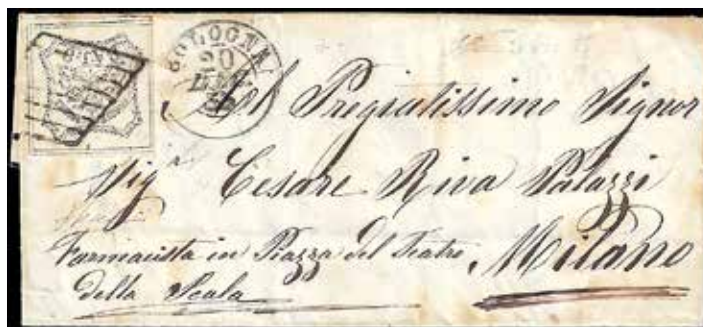 BOLOGNA
20
Al Pregiatissimo Signor
Sig.r Cesare Riva Palazzi
Farmacista in Piazza del Teatro Milano
della Scala